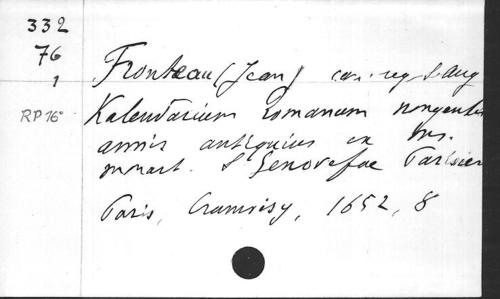 332
76
1
RP 16°
Fronteau (Jean) can. reg S Aug
Kalendarium romanum nongentis
annis antiquius ex ms.
monast. S Genovefae Parisien
Paris, Cramoisy, 1652, 8